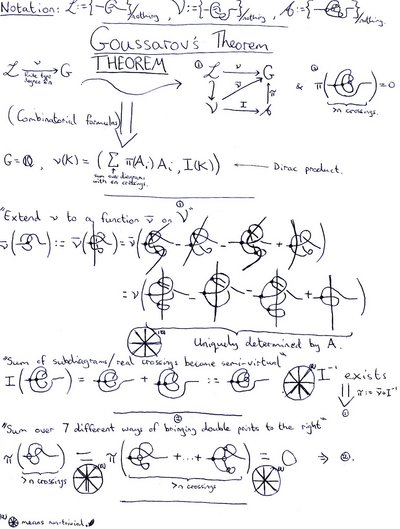 Notation: ℒ := { } /nothing, 𝒱 := { } /nothing, 𝒜 := { } /nothing.
Goussarov's Theorem
THEOREM
ℒ ν → G
finite type
degree ≤n
① ℒ ν → G
ν̄ π
𝒱 I → 𝒜
& ② π( ) = 0
>n crossings.
(Combinatorial formulas)
G=ℚ, ν(K) = ( ∑ π(Aᵢ) Aᵢ, I(K) ) ← Dirac product.
sum over diagrams
with ≤n crossings.
①
"Extend ν to a function ν̄ on 𝒱"
ν̄( ) := ν̄( ) = ν̄( - - + )
= ν( - - + )
Uniquely determined by A.
"Sum of subdiagrams/real crossings become semi-virtual"
I( ) = + := I⁻¹ exists
π := ν̄∘I⁻¹
①
②
"Sum over 7 different ways of bringing double points to the right"
π( ) = π( +...+ ) = 0 ⇒ ②.
>n crossings >n crossings
means non-trivial.